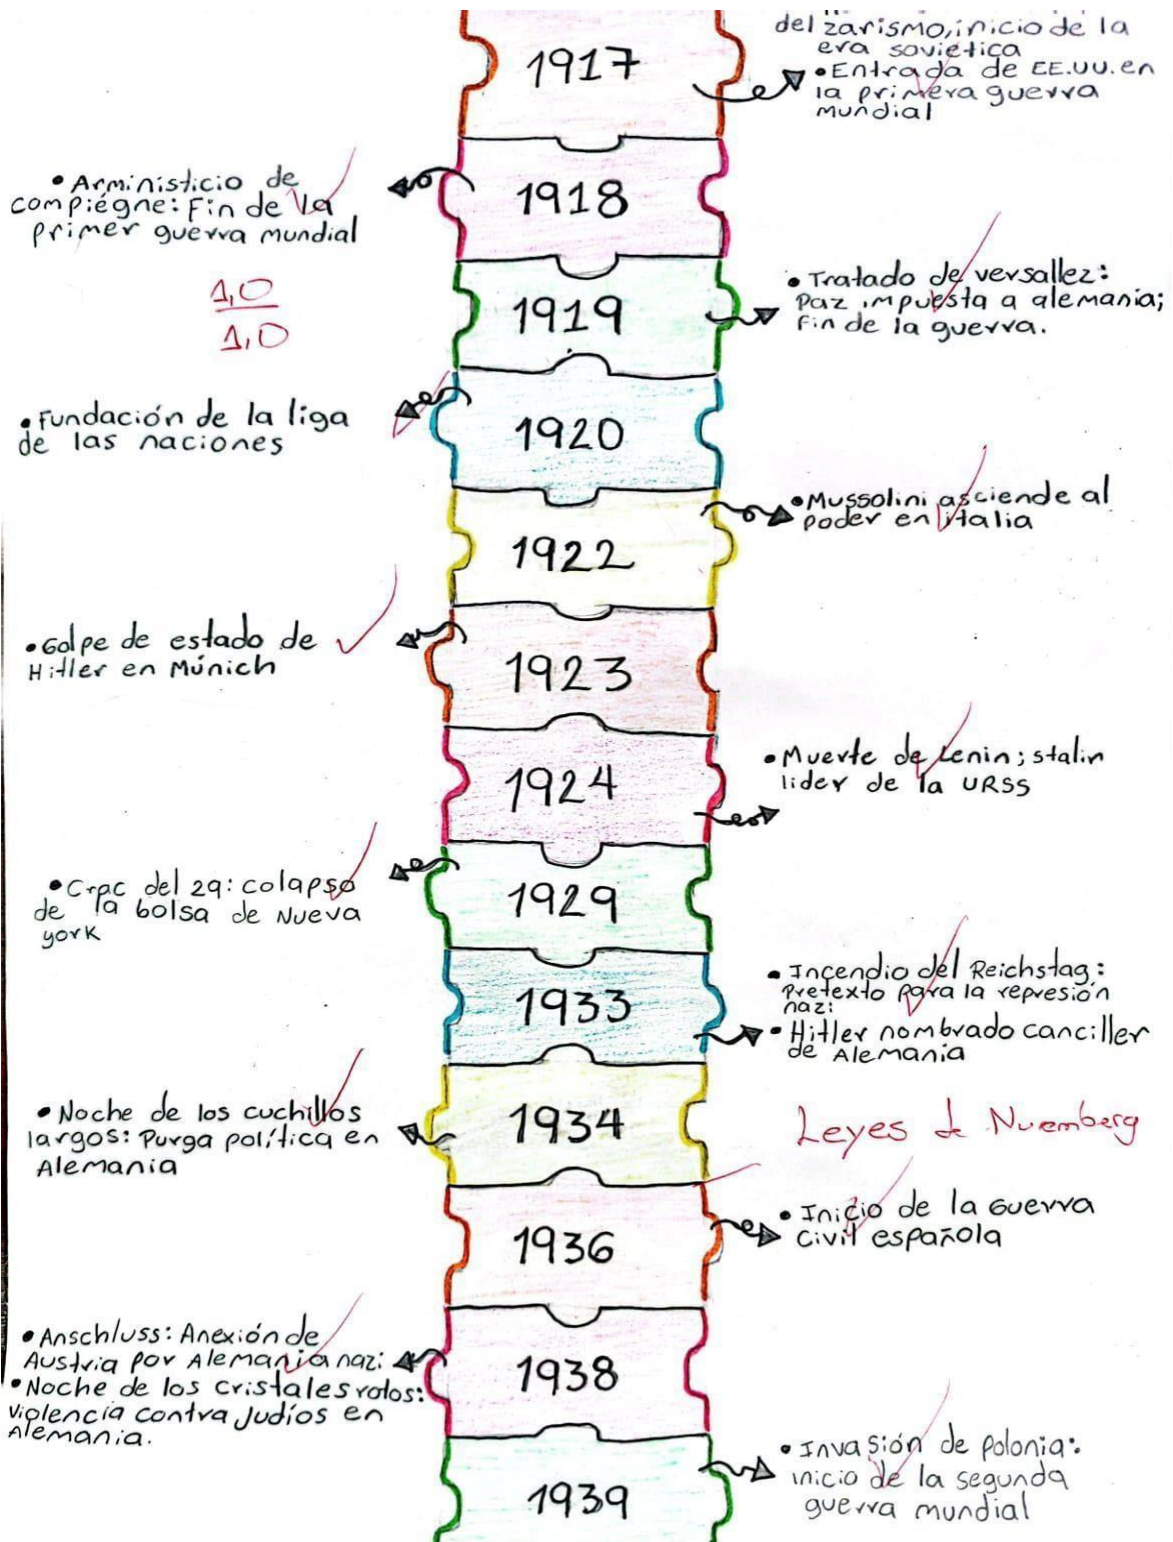 del zarismo, inicio de la
era soviética
1917
• Entrada de EE.UU. en
la primera guerra
mundial
• Arministicio de
compiégne: Fin de la
primer guerra mundial
1918
1,0
1,0
1919
• Tratado de versallez:
Paz impuesta a alemania;
Fin de la guerra.
• Fundación de la liga
de las naciones
1920
• Mussolini asciende al
poder en italia
1922
• Golpe de estado de
Hitler en Múnich
1923
1924
• Muerte de Lenin; stalin
lider de la URSS
• Crac del 29: colapso
de la bolsa de Nueva
york
1929
1933
• Incendio del Reichstag:
Pretexto para la represión
nazi
• Hitler nombrado canciller
de Alemania
• Noche de los cuchillos
largos: Purga política en
Alemania
1934
Leyes de Nuremberg
1936
• Inicio de la Guerra
Civil española
• Anschluss: Anexión de
Austria por Alemania nazi
• Noche de los cristales rotos:
Violencia contra Judíos en
Alemania.
1938
1939
• Invasión de polonia:
inicio de la segunda
guerra mundial